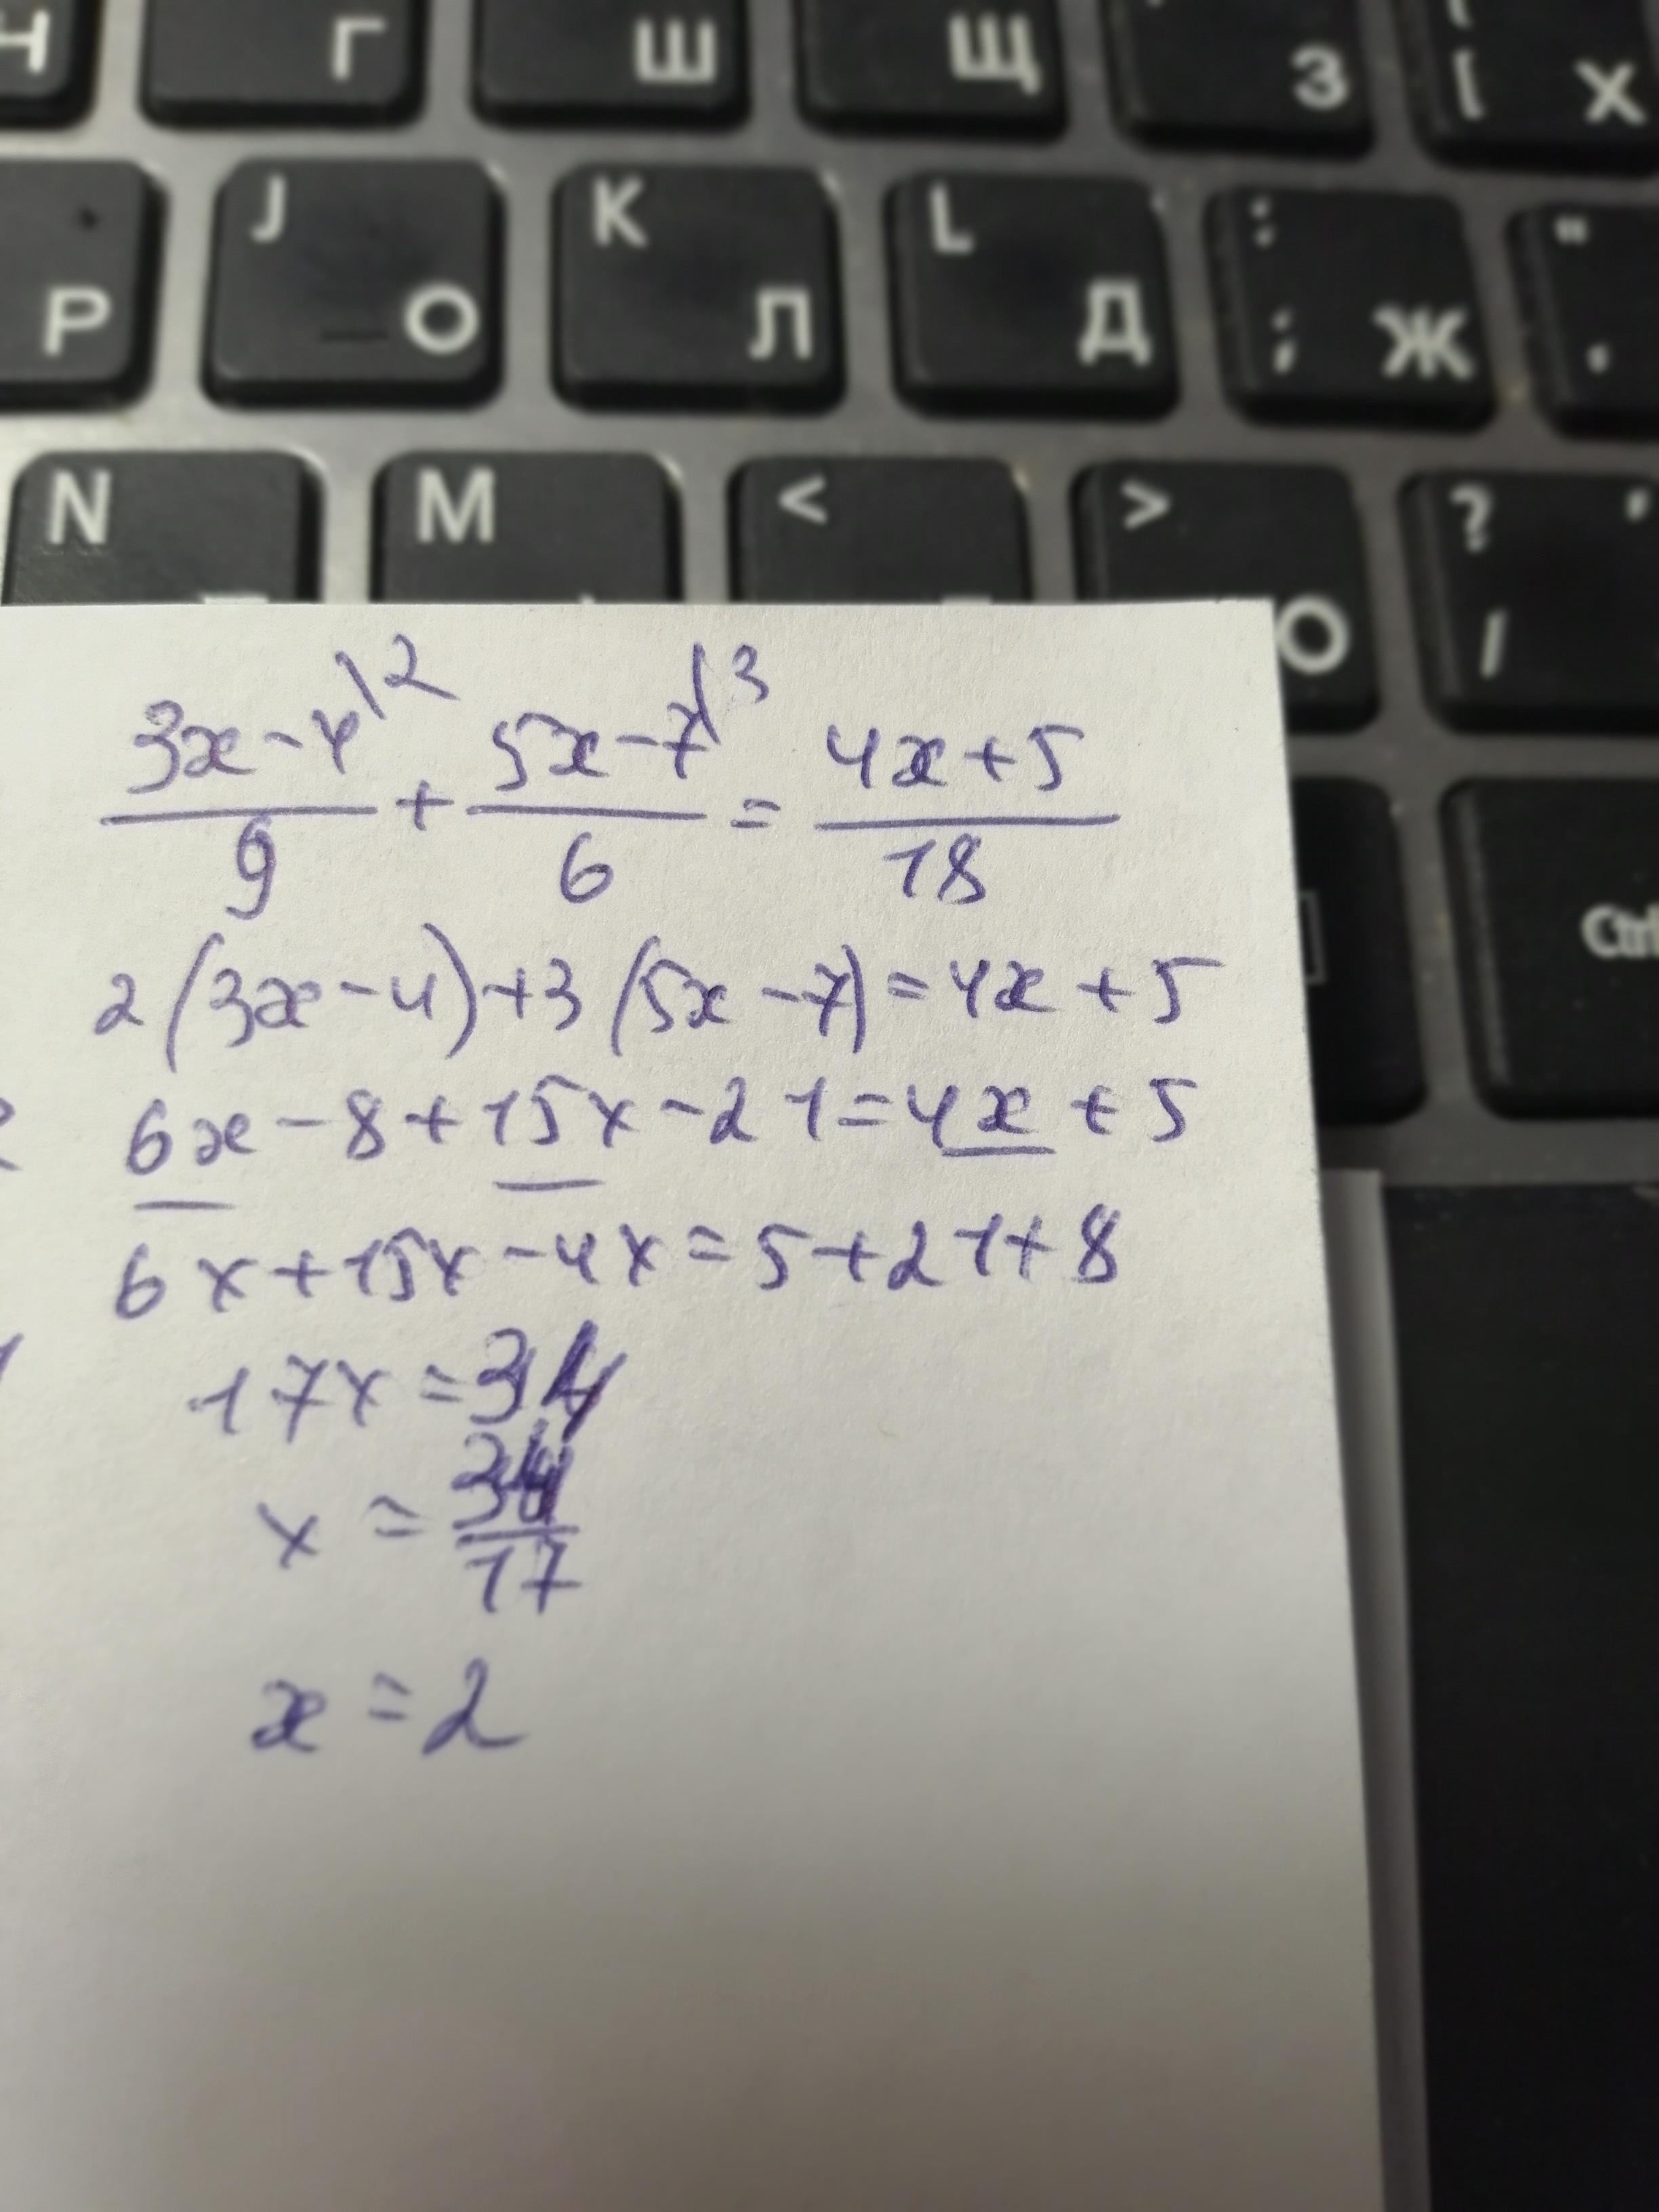 Н Г Ш Щ З [ Х
Р J О K Л L Д : ; Ж " '
N M < > Ю ? /
Ctrl
(3x-4)/9 |2 + (5x-7)/6 |3 = (4x+5)/18
2(3x-4)+3(5x-7)=4x+5
6x-8+15x-21=4x+5
6x+15x-4x=5+21+8
17x=34
x=34/17
x=2